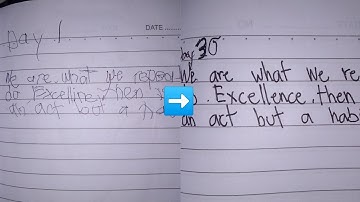 Day 1
DATE
we are what we repea
do Excelline, then
an act but a ha
Day 30
We are what we re
do. Excellence, then
an act but a hab